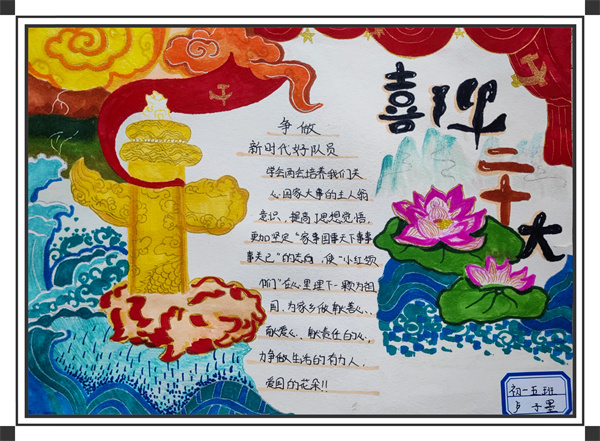 喜迎
二
十
大
争做
新时代好队员
学会两会培养我们关
心国家大事的主人翁
意识，提高了思想觉悟，
更加坚定“家事国事天下事事
事关己”的志向，使“小红领
巾们”在心里埋下一颗为祖
国，为家乡做献爱心、
献爱心、献责任的心，
力争做生活的有为人，
爱国的花朵!!
初一五班
卢子墨